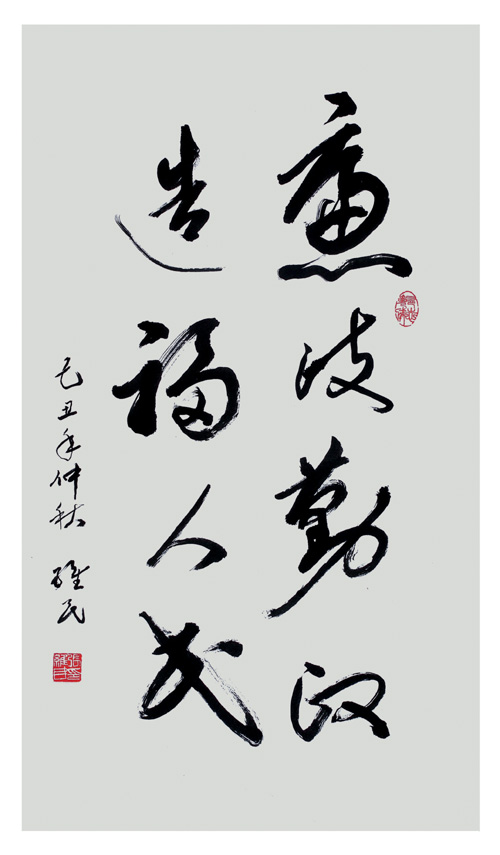 廉政勤政
造福人民
己丑年仲秋 維民